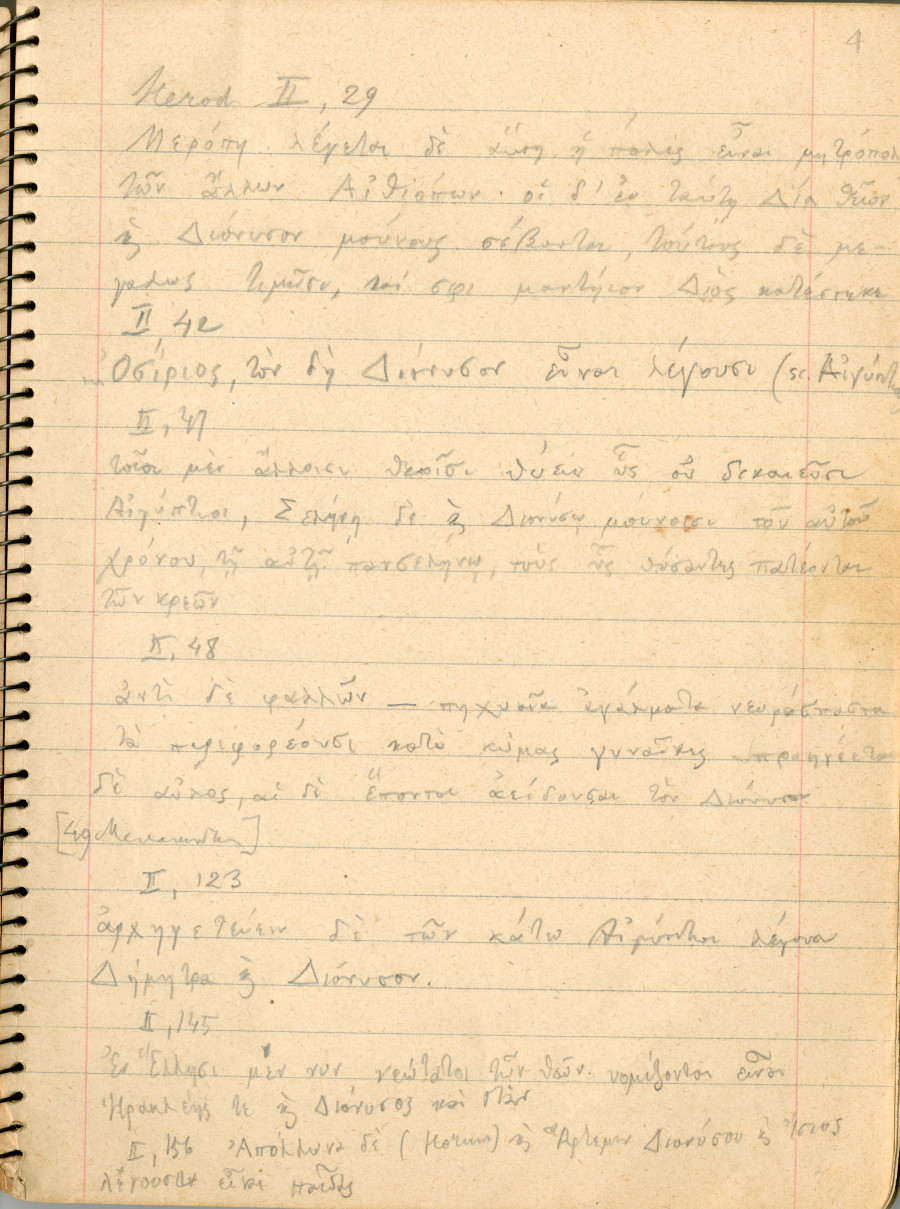 4
Herod II, 29
Μερόπη. λέγεται δὲ αὕτη ἡ πόλις εἶναι μητρόπολ
τῶν ἄλλων Αἰθιόπων· οἱ δ' ἐν ταύτῃ Δία θεῶν
ϗ Διόνυσον μούνους σέβονται, τούτους δὲ με-
γάλως τιμῶσι, καί σφι μαντήιον Διὸς κατέστηκε
II, 42
Ὀσίριος, τὸν δὴ Διόνυσον εἶναι λέγουσι (sc. Αἰγύπτιοι
II, 47
τοῖσι μὲν ἄλλοισι θεοῖσι θύειν ὗς οὐ δικαιεῦσι
Αἰγύπτιοι, Σελήνῃ δὲ ϗ Διονύσῳ μούνοισι τοῦ αὐτοῦ
χρόνου, τῇ αὐτῇ πανσελήνῳ, τοὺς ὗς θύσαντες πατέονται
τῶν κρεῶν
II, 48
ἀντὶ δὲ φαλλῶν — πηχυαῖα ἀγάλματα νευρόσπαστα
τὰ περιφορέουσι κατὰ κώμας γυναῖκες προηγέεται
δὲ αὐλός, αἱ δὲ ἕπονται ἀείδουσαι τὸν Διόνυσον
[49
II, 123
ἀρχηγετεύειν δὲ τῶν κάτω Αἰγύπτιοι λέγουσι
Δήμητρα ϗ Διόνυσον.
II, 145
Ἐν Ἕλλησι μέν νυν νεώτατοι τῶν θεῶν νομίζονται εἶναι
Ἡρακλέης τε ϗ Διόνυσος καὶ Πάν
II, 156 Ἀπόλλωνα δὲ (Horum) ϗ Ἄρτεμιν Διονύσου ϗ Ἴσιος
λέγουσιν εἶναι παῖδας